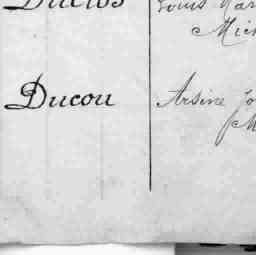 Duclos Louis Mar
Mich
Ducou Arsène Jo
M